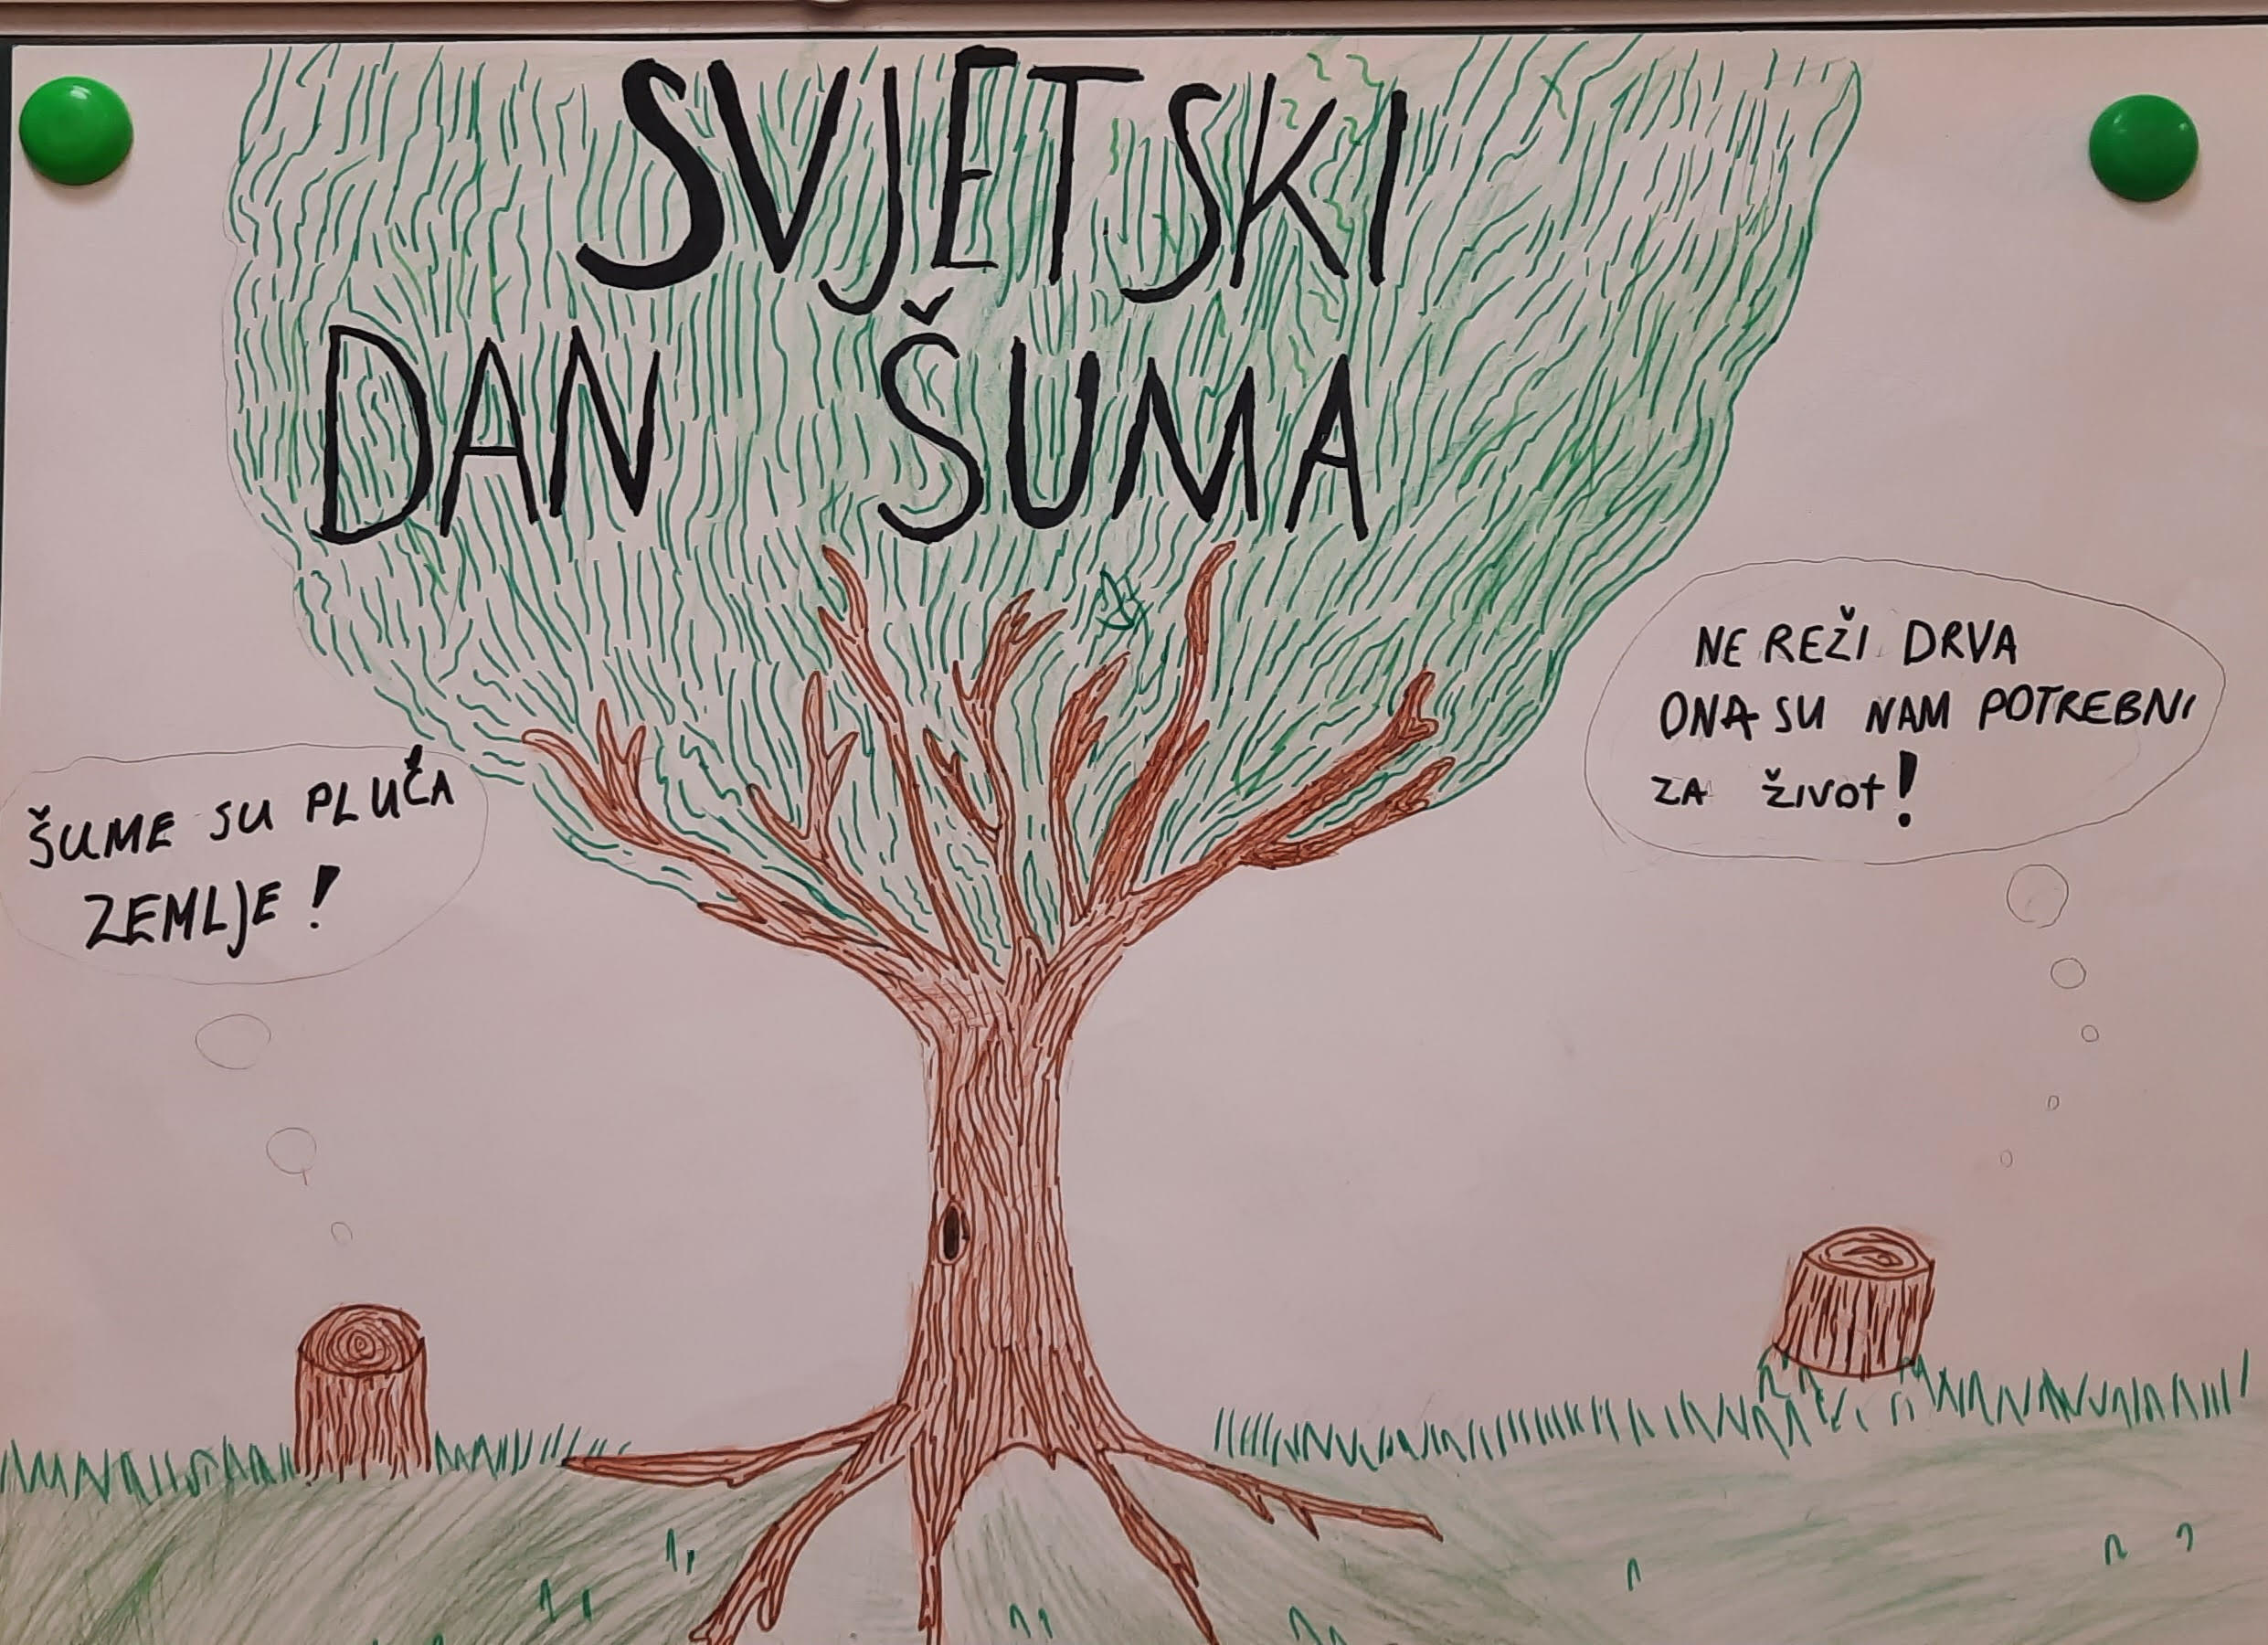 SVJETSKI
DAN ŠUMA
ŠUME SU PLUĆA
ZEMLJE!
NE REŽI DRVA
ONA SU NAM POTREBNI
ZA ŽIVOt!